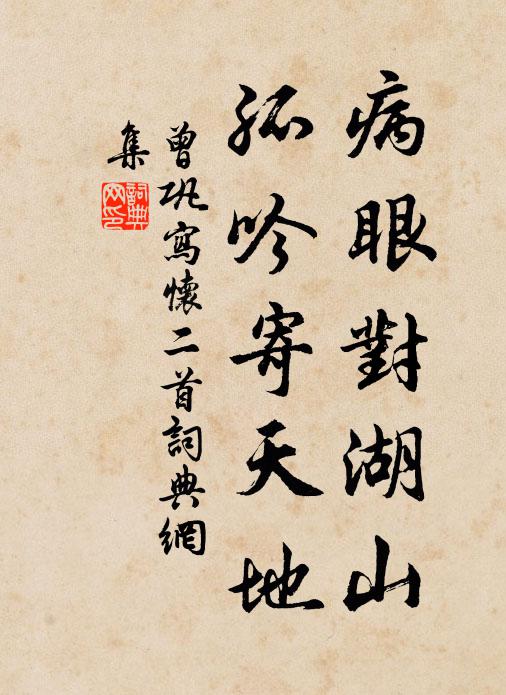 病眼對湖山
孤吟寄天地
曾巩寫懷二首詞典網
集
詞典
网印